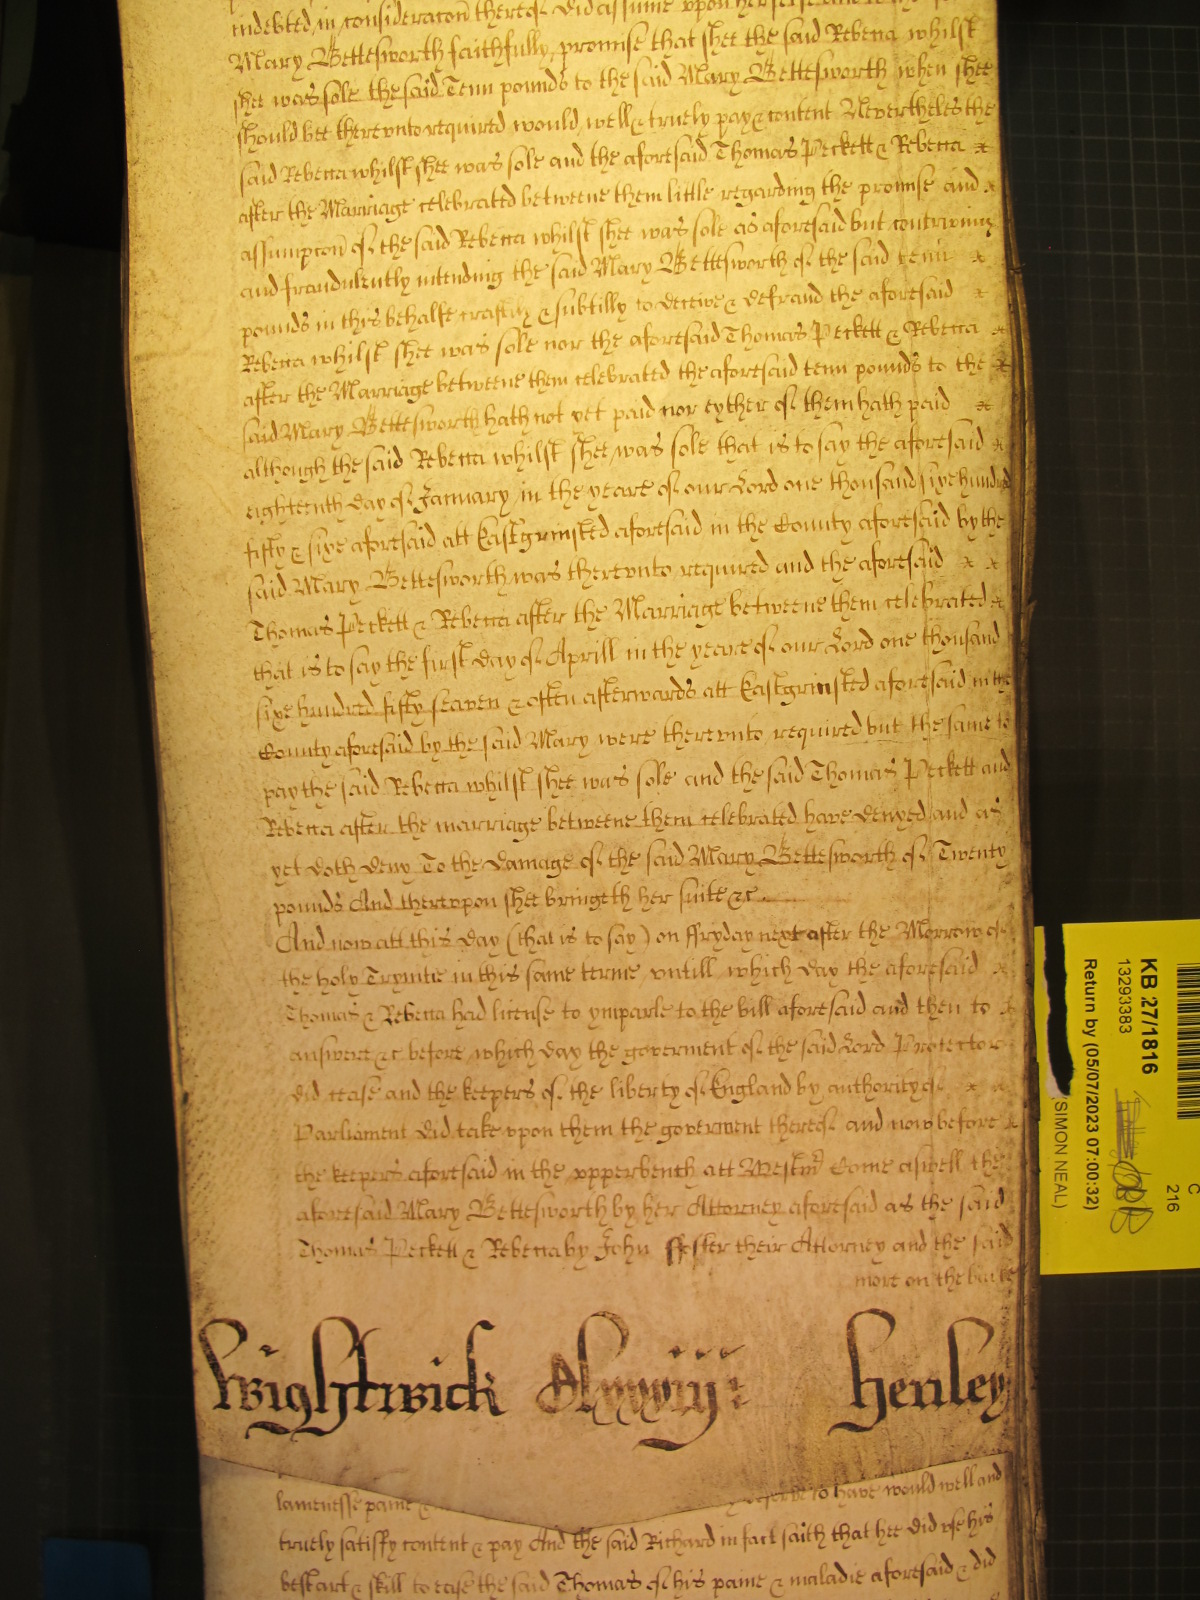 indebted in consideracon thereof did assume upon her selfe and to the
Mary Bettesworth faithfully promise that shee the said Rebecca whilst
shee was sole the said Tenn pounds to the said Mary Bettesworth when shee
should bee therevnto required would well & truely pay & content Neverthelesse the
said Rebecca whilst shee was sole and the aforesaid Thomas Peckett & Rebecca
after the Marriage celebrated betweene them little regarding the promise and
assumpcon of the said Rebecca whilst shee was sole as aforesaid but contriving
and fraudulently intending the said Mary Bettesworth of the said tenn
pounds in this behalfe craftily & subtilly to deceive & defraud the aforesaid
Rebecca whilst shee was sole nor the aforesaid Thomas Peckett & Rebecca
after the Marriage betweene them celebrated the aforesaid tenn pounds to the
said Mary Bettesworth hath not yet paid nor eyther of them hath paid
although the said Rebecca whilst shee was sole that is to say the aforesaid
eighteenth day of January in the yeare of our Lord one thousand sixe hundred
fifty & sixe aforesaid att Eastgrinsted aforesaid in the County aforesaid by the
said Mary Bettesworth was therevnto required and the aforesaid
Thomas Peckett & Rebecca after the Marriage betweene them celebrated
that is to say the first day of Aprill in the yeare of our Lord one thousand
sixe hundred fifty seaven & often afterwards att Eastgrinsted aforesaid in the
County aforesaid by the said Mary were therevnto required but the same to
pay the said Rebecca whilst shee was sole and the said Thomas Peckett and
Rebecca after the marriage betweene them celebrated have denyed and as
yet doth deny To the damage of the said Mary Bettesworth of Twenty
pounds And therevpon shee bringeth her suite &c
And now att this day (that is to say) on ffryday next after the Morrow of
the holy Trynitie in this same terme vntill which day the aforesaid
Thomas & Rebecca had license to ymparle to the bill aforesaid and then to
answere &c before which day the goverment of the said Lord Protector
did cease and the keepers of the liberty of England by authority of
Parliament did take vpon them the goverment thereof and now before
the keepers aforesaid in the vpperbench att Westmr Come aswell the
aforesaid Mary Bettesworth by her Attorney aforesaid as the said
Thomas Peckett & Rebecca by John ffoster their Attorney and the said
more on the backe
Wightwick Henley
lamenesse paine & deserve to have would well and
truely satisfy content & pay And the said Richard in fact saith that hee did vse his
best art & skill to ease the said Thomas of his paine & maladie aforesaid & did
KB 27/1816
13293383
Return by (05/07/2023 07:00:32)
(SIMON NEAL)
C
216